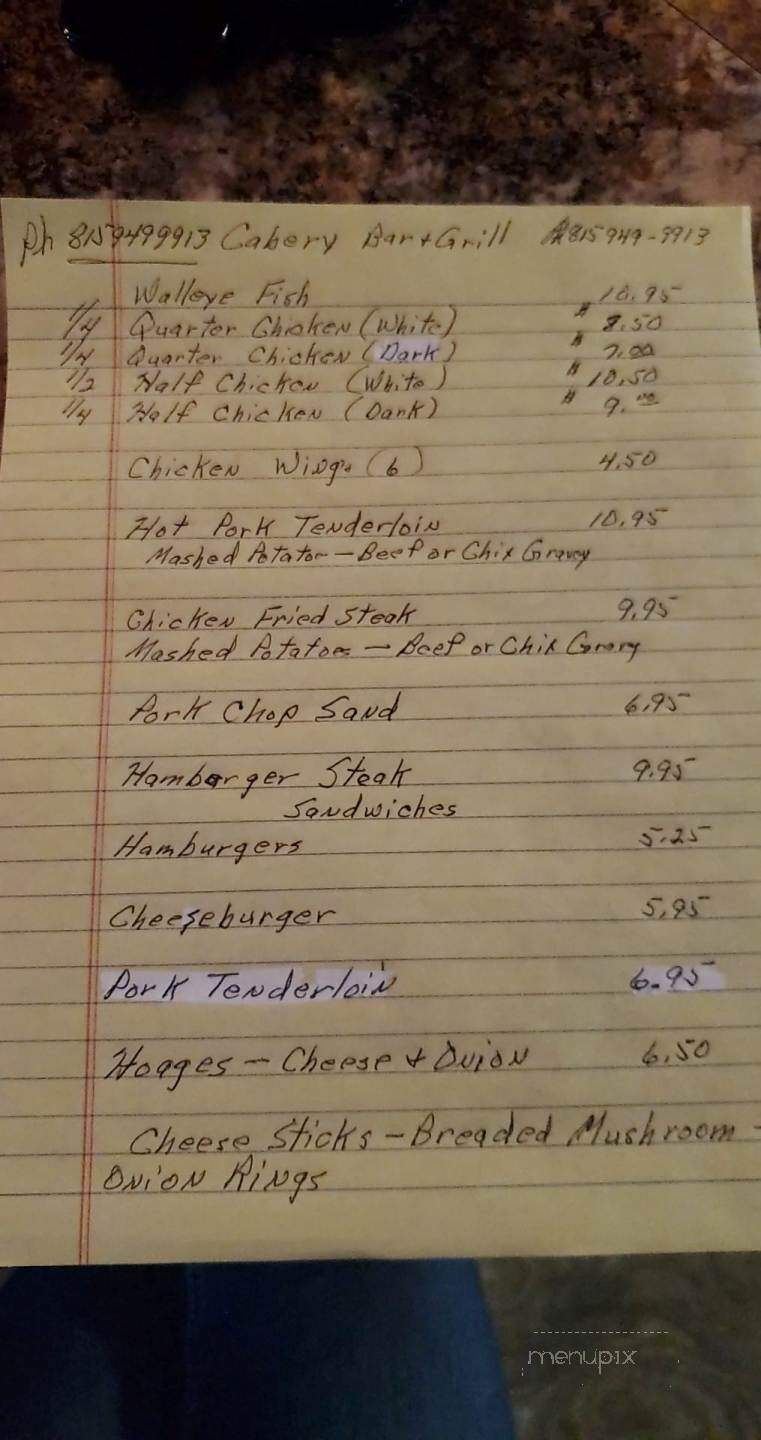 Ph 8159499913 Cabery Bar + Grill 815 949-9913
Walleye Fish 10.95
1/4 Quarter Chicken (White) $ 8.50
1/4 Quarter Chicken (Dark) $ 7.00
1/2 Half Chicken (White) $ 10.50
1/4 Half Chicken (Dark) $ 9.00
Chicken Wings (6) 4.50
Hot Pork Tenderloin 10.95
Mashed Potatoe - Beef or Chix Gravey
Chicken Fried Steak 9.95
Mashed Potatoes - Beef or Chix Gravy
Pork Chop Sand 6.95
Hamburger Steak 9.95
Sandwiches
Hamburgers 5.25
Cheeseburger 5.95
Pork Tenderloin 6.95
Hoages - Cheese + Onion 6.50
Cheese Sticks - Breaded Mushroom -
Onion Rings
menupix